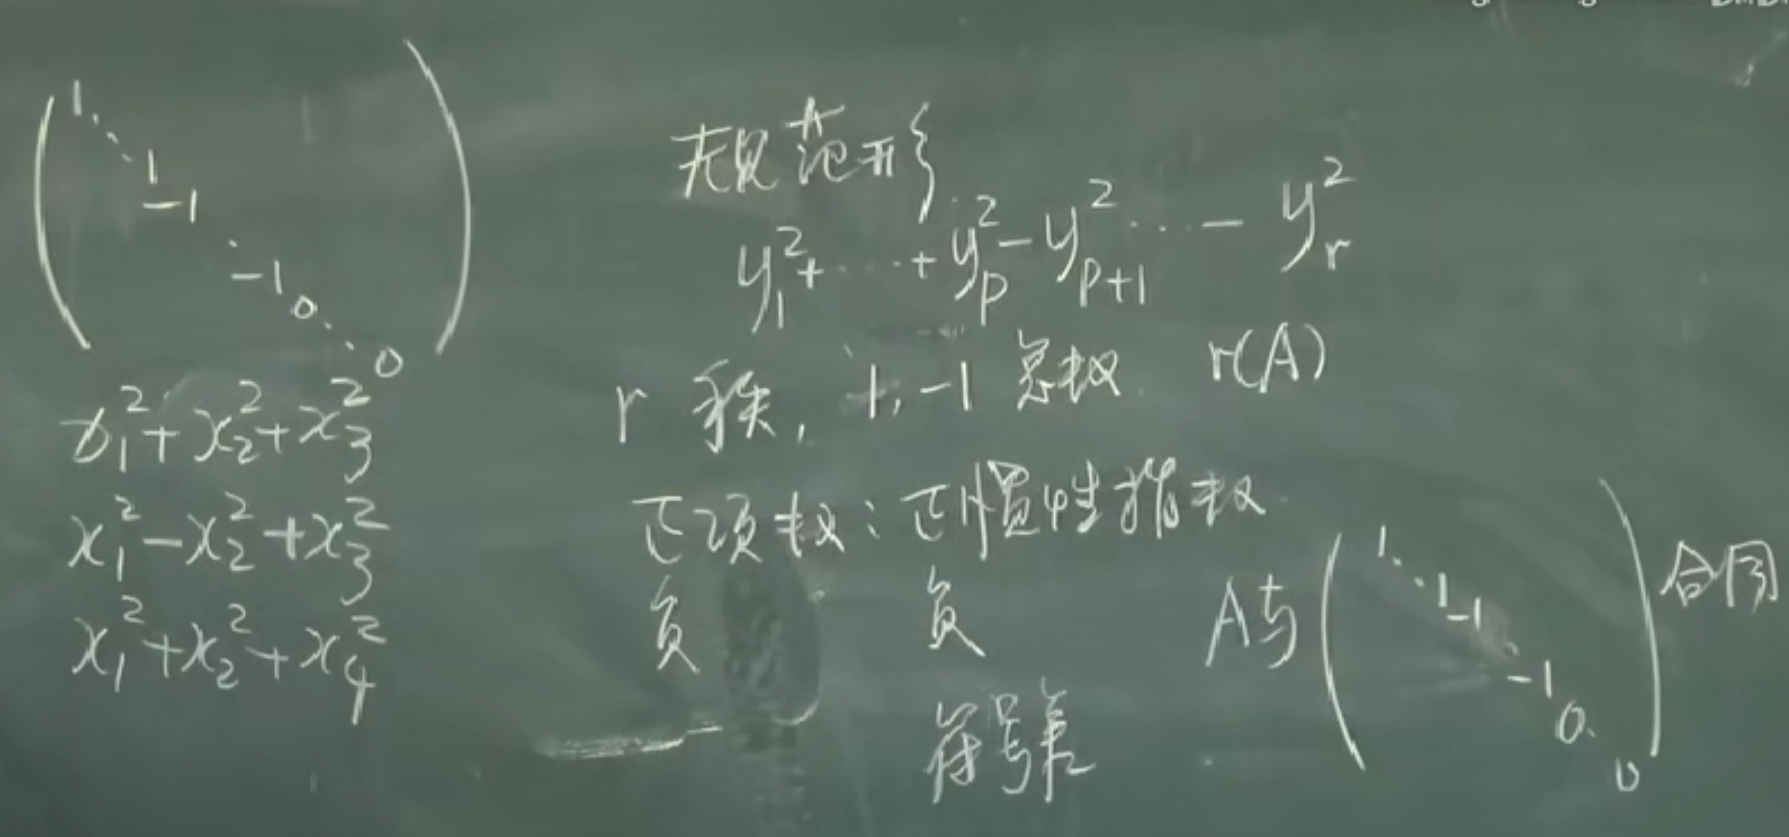 1
⋱
1
-1
⋱
-1
0
⋱
0
x₁²+x₂²+x₃²
x₁²-x₂²+x₃²
x₁²+x₂²+x₄²
规范形
y₁²+⋯+y_p²-y_{p+1}²⋯-y_r²
r 秩, 1,-1 总数 r(A)
正项数:正惯性指数
负 负
符号差
A与 ( 1 ⋱ 1 -1 ⋱ -1 0 ⋱ 0 ) 合同